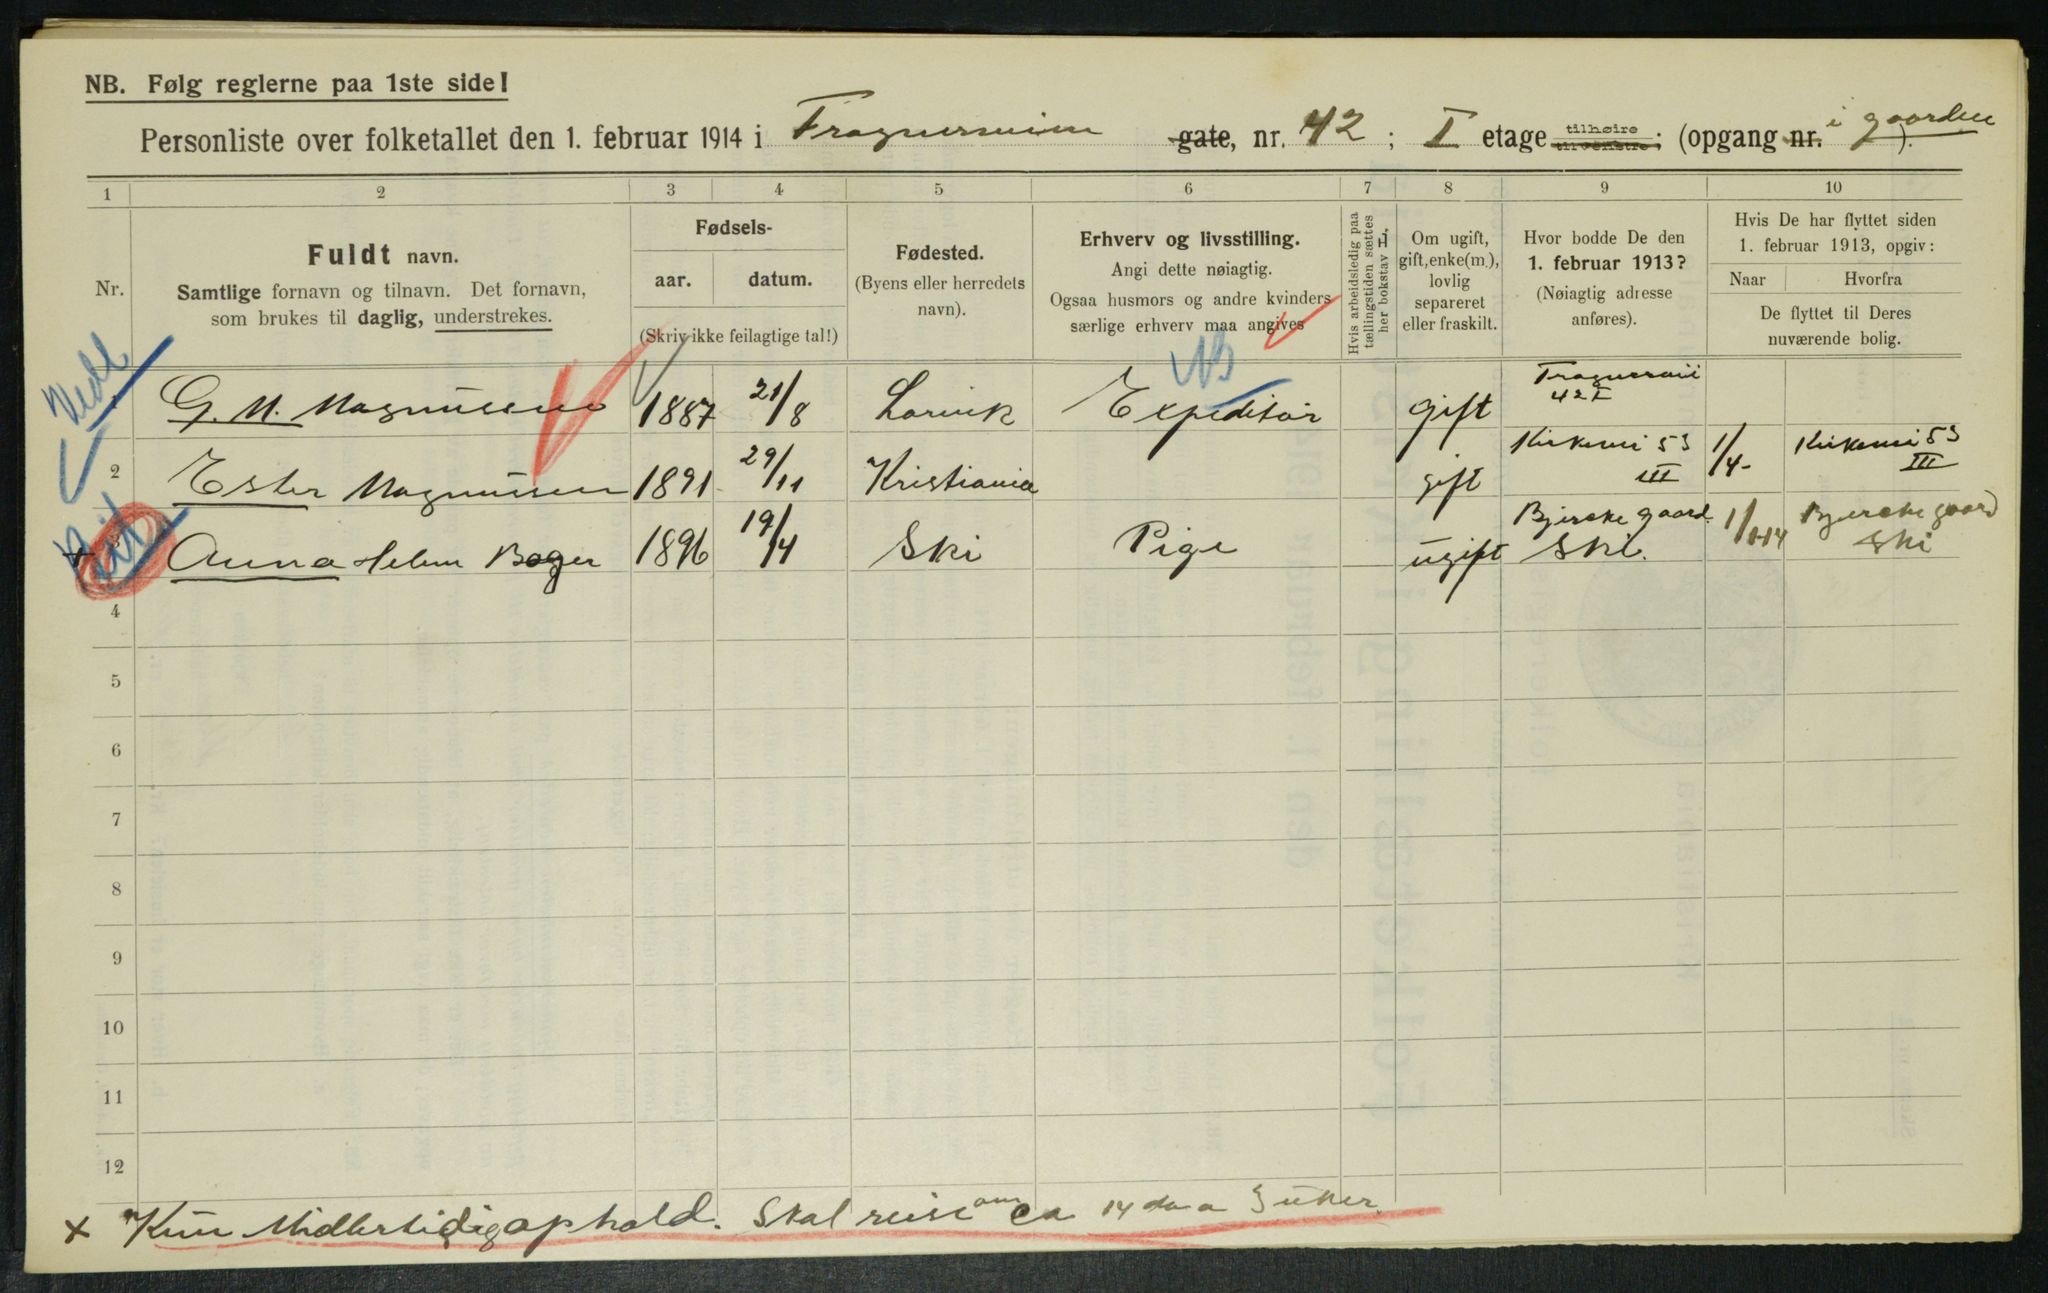 NB. Følg reglerne paa 1ste side!
Personliste over folketallet den 1. februar 1914 i Frognerveien gate, nr. 42; I etage tilhøire tilvenstre; (opgang nr. i gaarden).
1 2 3 4 5 6 7 8 9 10
Nr.
Fuldt navn.
Samtlige fornavn og tilnavn. Det fornavn,
som brukes til daglig, understrekes.
Fødsels-
aar. datum.
(Skriv ikke feilagtige tal!)
Fødested.
(Byens eller herredets
navn).
Erhverv og livsstilling.
Angi dette nøiagtig.
Ogsaa husmors og andre kvinders
særlige erhverv maa angives
Hvis arbeidsledig paa
tællingstiden sættes
her bokstav H.
Om ugift,
gift, enke(m.),
lovlig
separeret
eller fraskilt.
Hvor bodde De den
1. februar 1913?
(Nøiagtig adresse
anføres).
Hvis De har flyttet siden
1. februar 1913, opgiv:
Naar Hvorfra
De flyttet til Deres
nuværende bolig.
1 G. M. Magnussen 1887 21/8 Larvik Expeditør gift Frognerveii 42 I
2 Ester Magnussen 1891 29/11 Kristiania gift Kirkevei 53 III 1/4- Kirkevei 53 III
+ 3 Anna Helene Boger 1896 19/4 Ski Pige ugift Bjercke gaard. Ski. 1/1-14 Bjercke gaard Ski
4
5
6
7
8
9
10
11
12
+ Kun Midlertidig ophold. Skal reise om ca 14 da a 3 uker.